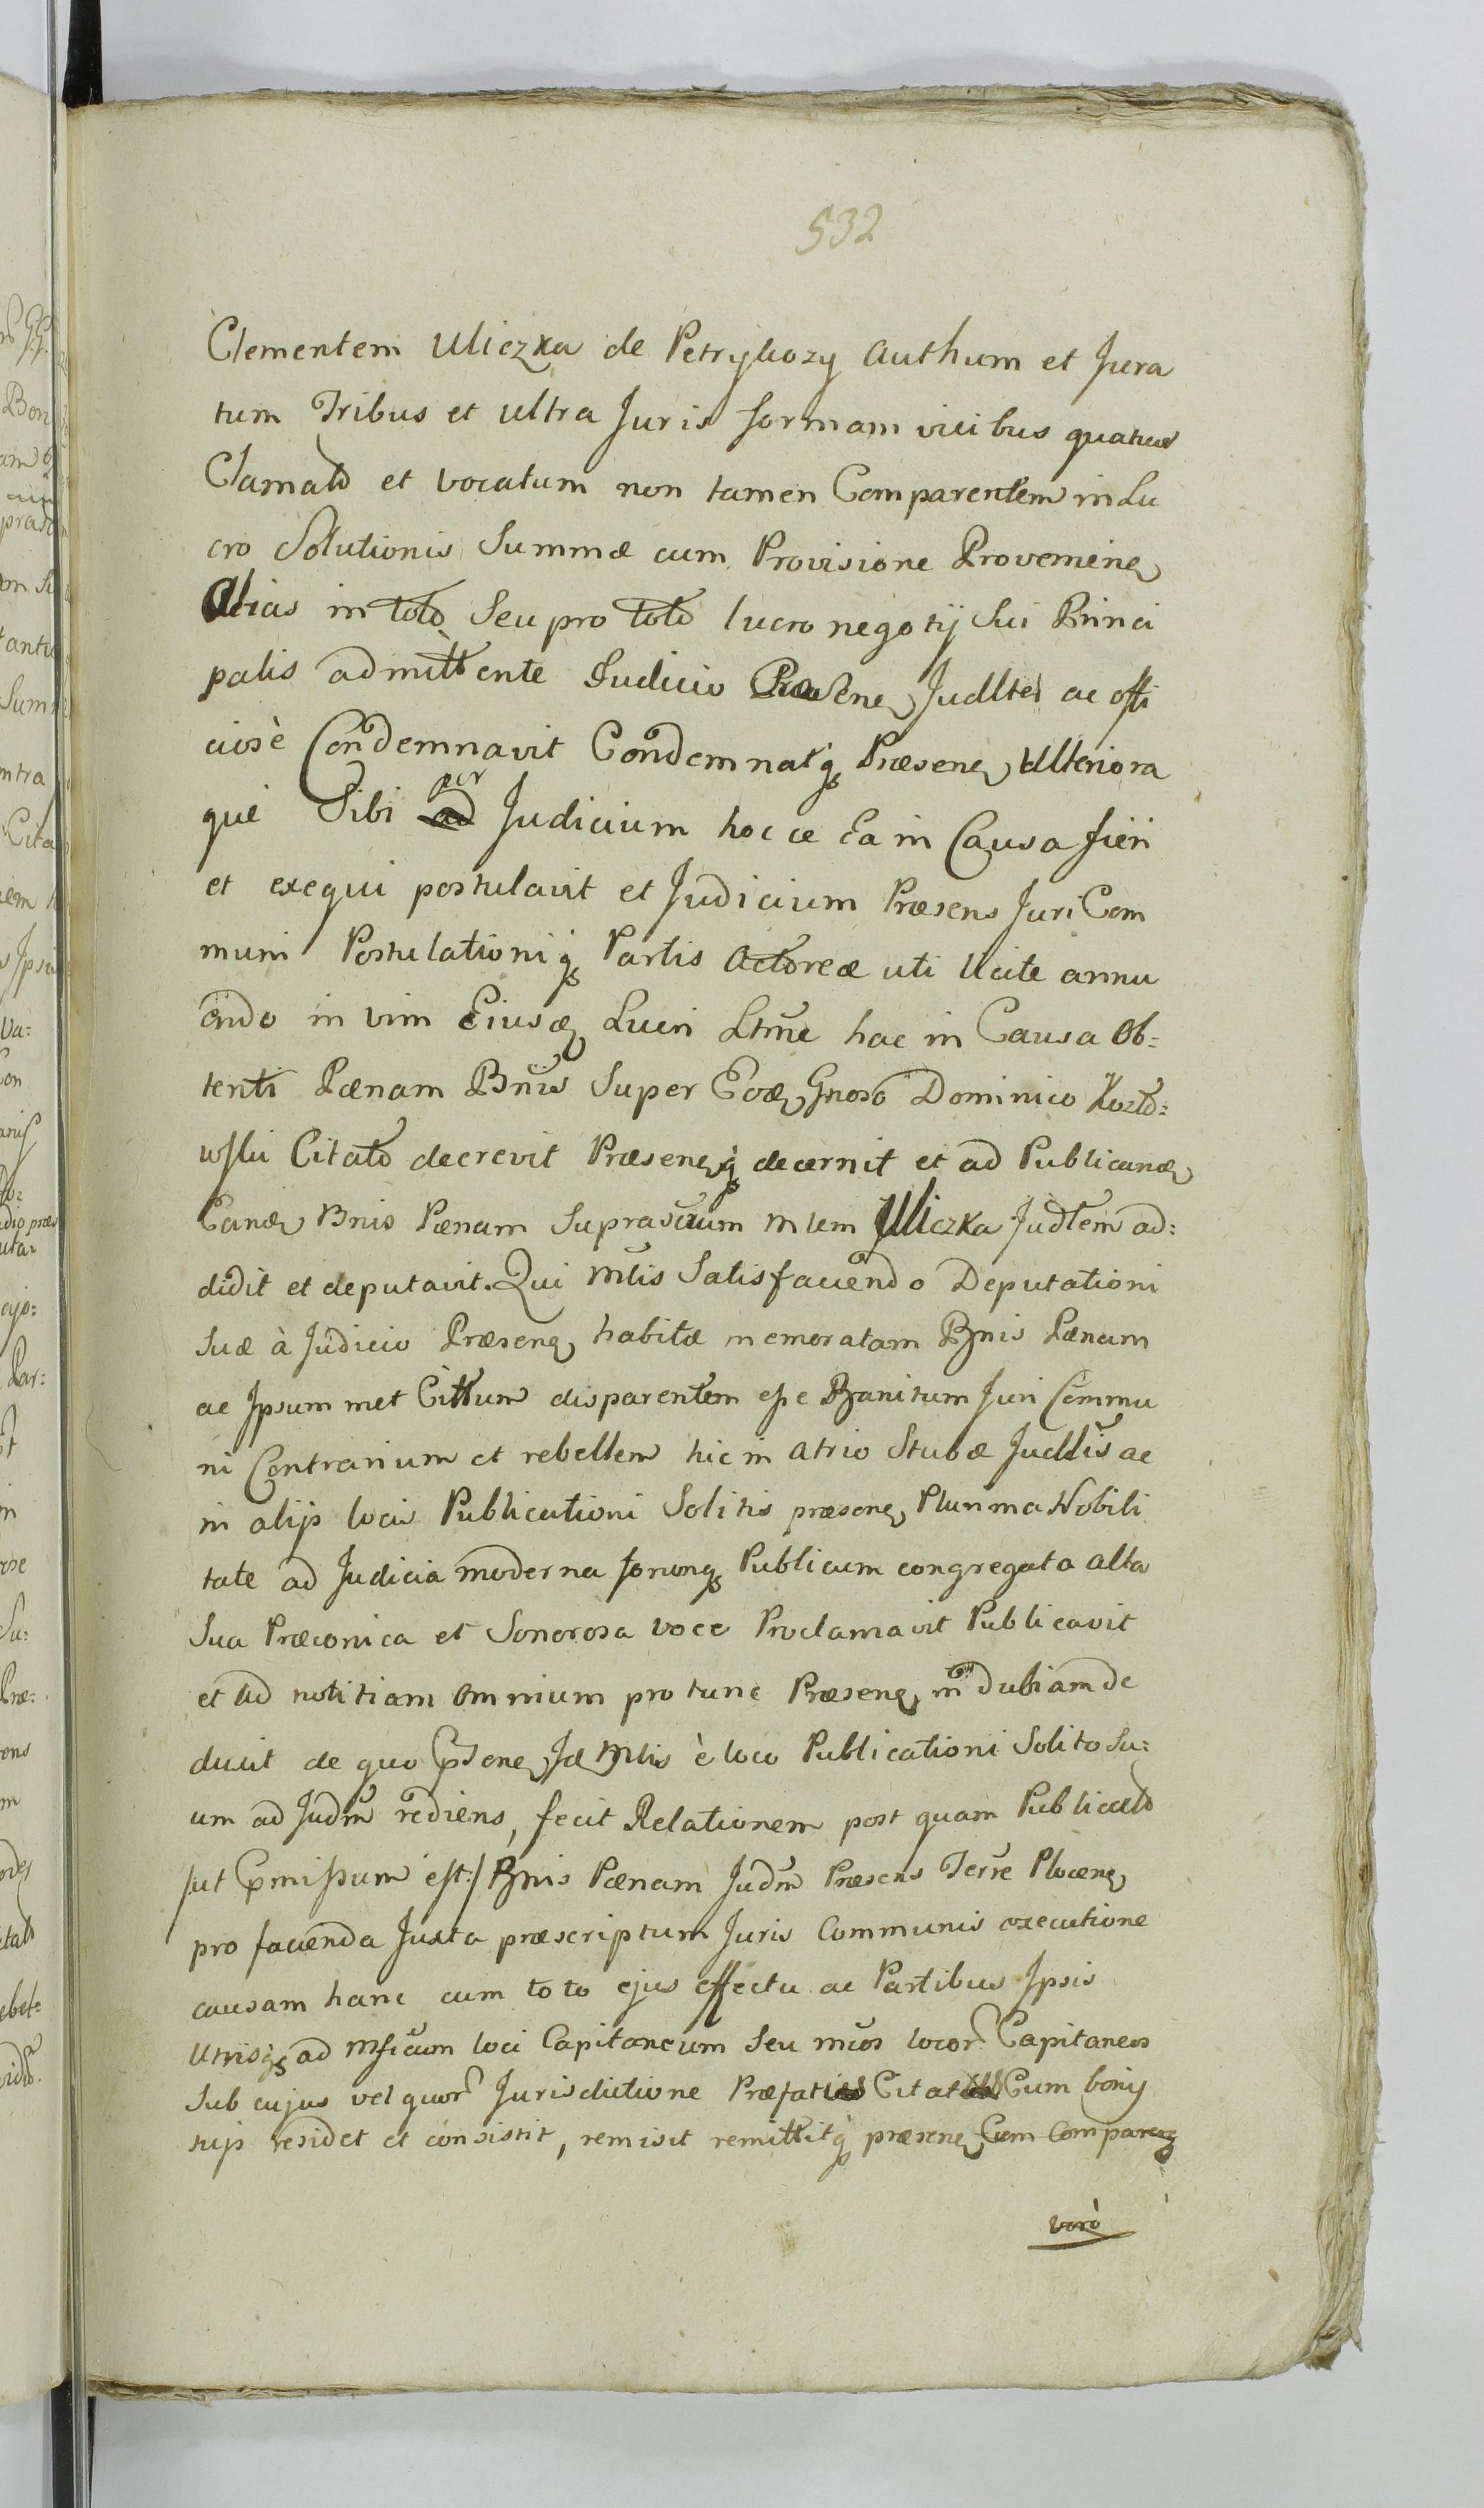 532
Clementem Uliczka de Petrykozy Authum et Jura
tum Tribus et ultra Juris formam vicibus quatuor
Clamatū et vocatum non tamen Comparentem in Lu
cro Solutionis Summæ cum Provisione Provenien
Alias in toto Seu pro toto lucro negotij Sui Princi
palis admittente Judicio Præsen Judlter ac offi
ciosè Condemnavit Condemnatq Præsen Ulteriora
què Sibi per Judicium hocce Ea in Causa fieri
et exequi postulavit et Judicium Præsens Juri Com
muni Postulationiq Partis Actoreæ uti licite annu
endo in vim Eiusd Lucri Ltme hac in Causa Ob=
tenti Pænam Bnis Super Eod Gnoso Dominico Kozło=
wski Citato decrevit Præsenq decernit et ad Publicand
Eand Bnis Pænam Suprascrum mlem Uliczka Judlem ad=
didit et deputavit. Qui Mlis Satisfaciendo Deputationi
Suæ à Judicio Præsen habitæ memoratam Bnis Pænam
ac Ipsummet Cittum disparentem esse Banitum Juri Commu
ni Contrarium et rebellem hic in atrio Stubæ Judlis ac
in alijs locis Publicationi Solitis præsen Plurima Nobili
tate ad Judicia moderna forumq Publicum congregata alta
Sua Præconica et Sonorosa voce Proclamavit Publicavit
et ad notitiam omnium pro tunc Præsen indubiam de
duxit de quo Præsen Id Mlis è loco Publicationi Solito Su=
um ad Judm rediens, fecit Relationem post quam Publicatā
/ut Præmissum est:/ Bnis Pænam Judm Præsens Terre Plocen
pro facienda Juxta præscriptum Juris Communis executione
causam hanc cum toto ejus effectu ac Partibus Ipsis
Utrisq ad Mficum loci Capitaneum Seu Mcos locor Capitaneos
Sub cujus vel quor Jurisdictione Præfatus Citatus Cum bonis
suis residet et consistit, remisit remittitq præsen Cum Comparen
verò